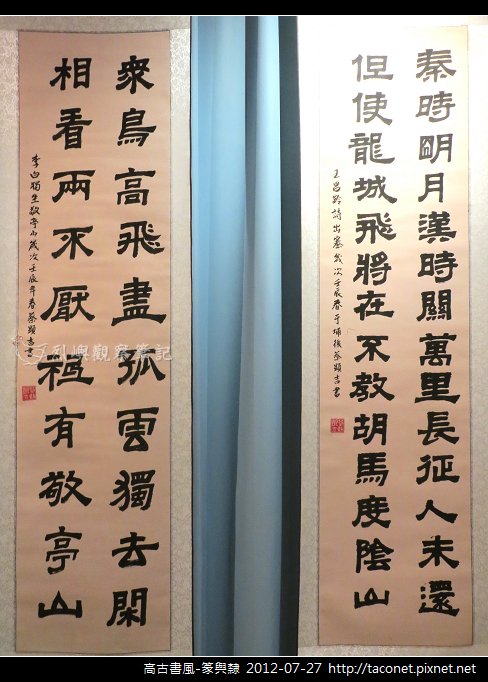 秦時明月漢時關萬里長征人未還
但使龍城飛將在不教胡馬度陰山
王昌齡詩出塞歲次壬辰春于埔後蔡顯吉書
眾鳥高飛盡孤雲獨去閑
相看兩不厭祗有敬亭山
李白獨坐敬亭山歲次壬辰年春蔡顯吉書
烈興觀察筆記
高古書風-篆與隸 2012-07-27 http://taconet.pixnet.net